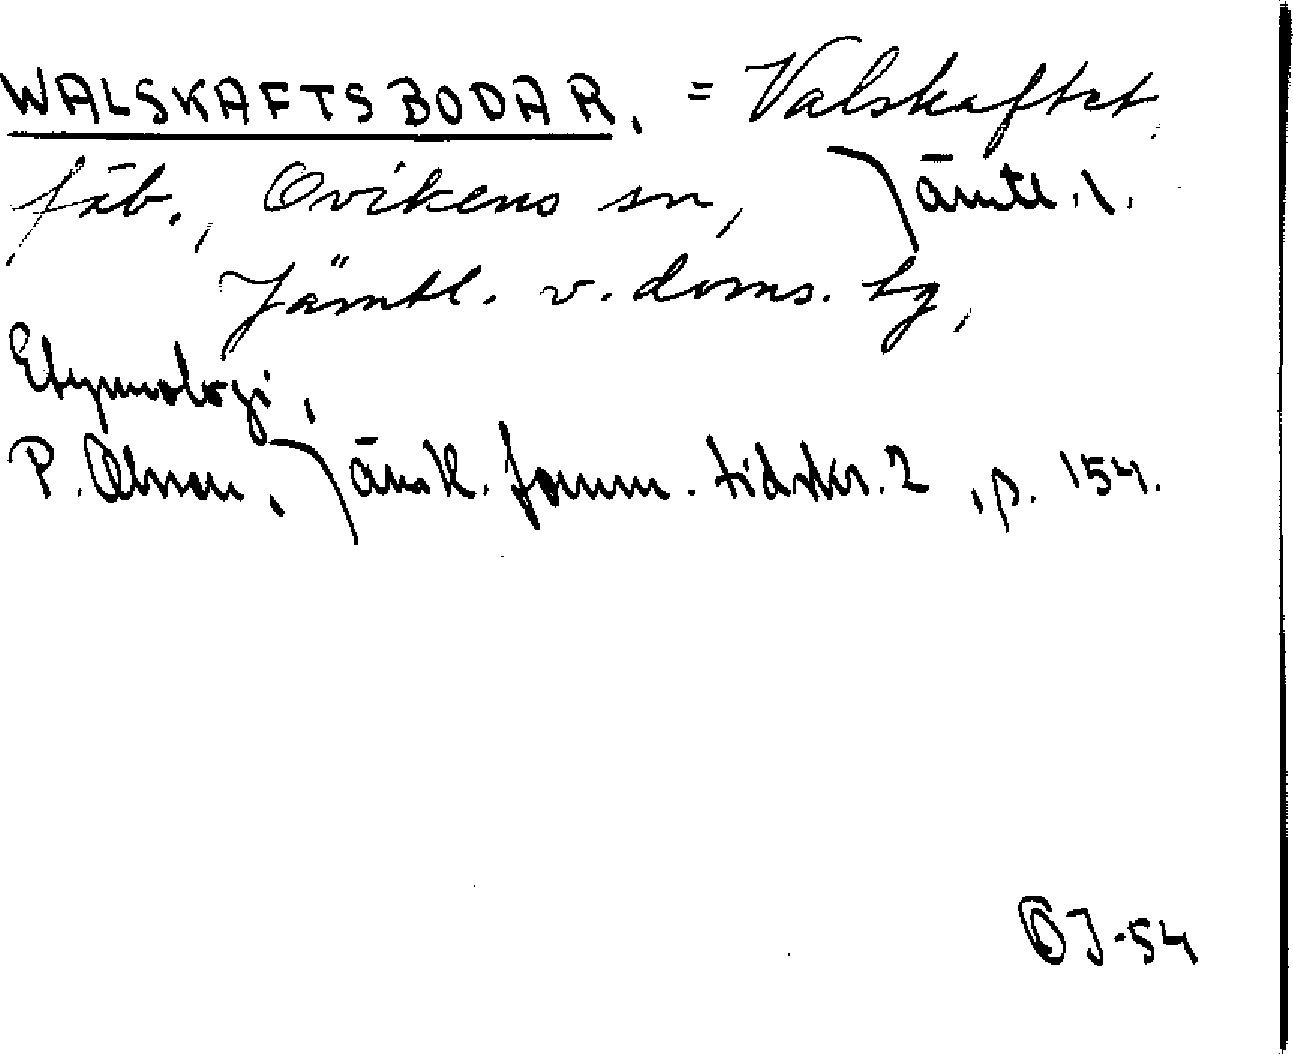 WALSKAFTSBODAR. = Valskaftet,
fäb., Ovikens sn, Jämtl. l.
Jämtl. v. doms. hg,
Etymologi,
P. Olsson, Jämtl. fornm. tidskr. 2, p. 154.
OJ-54